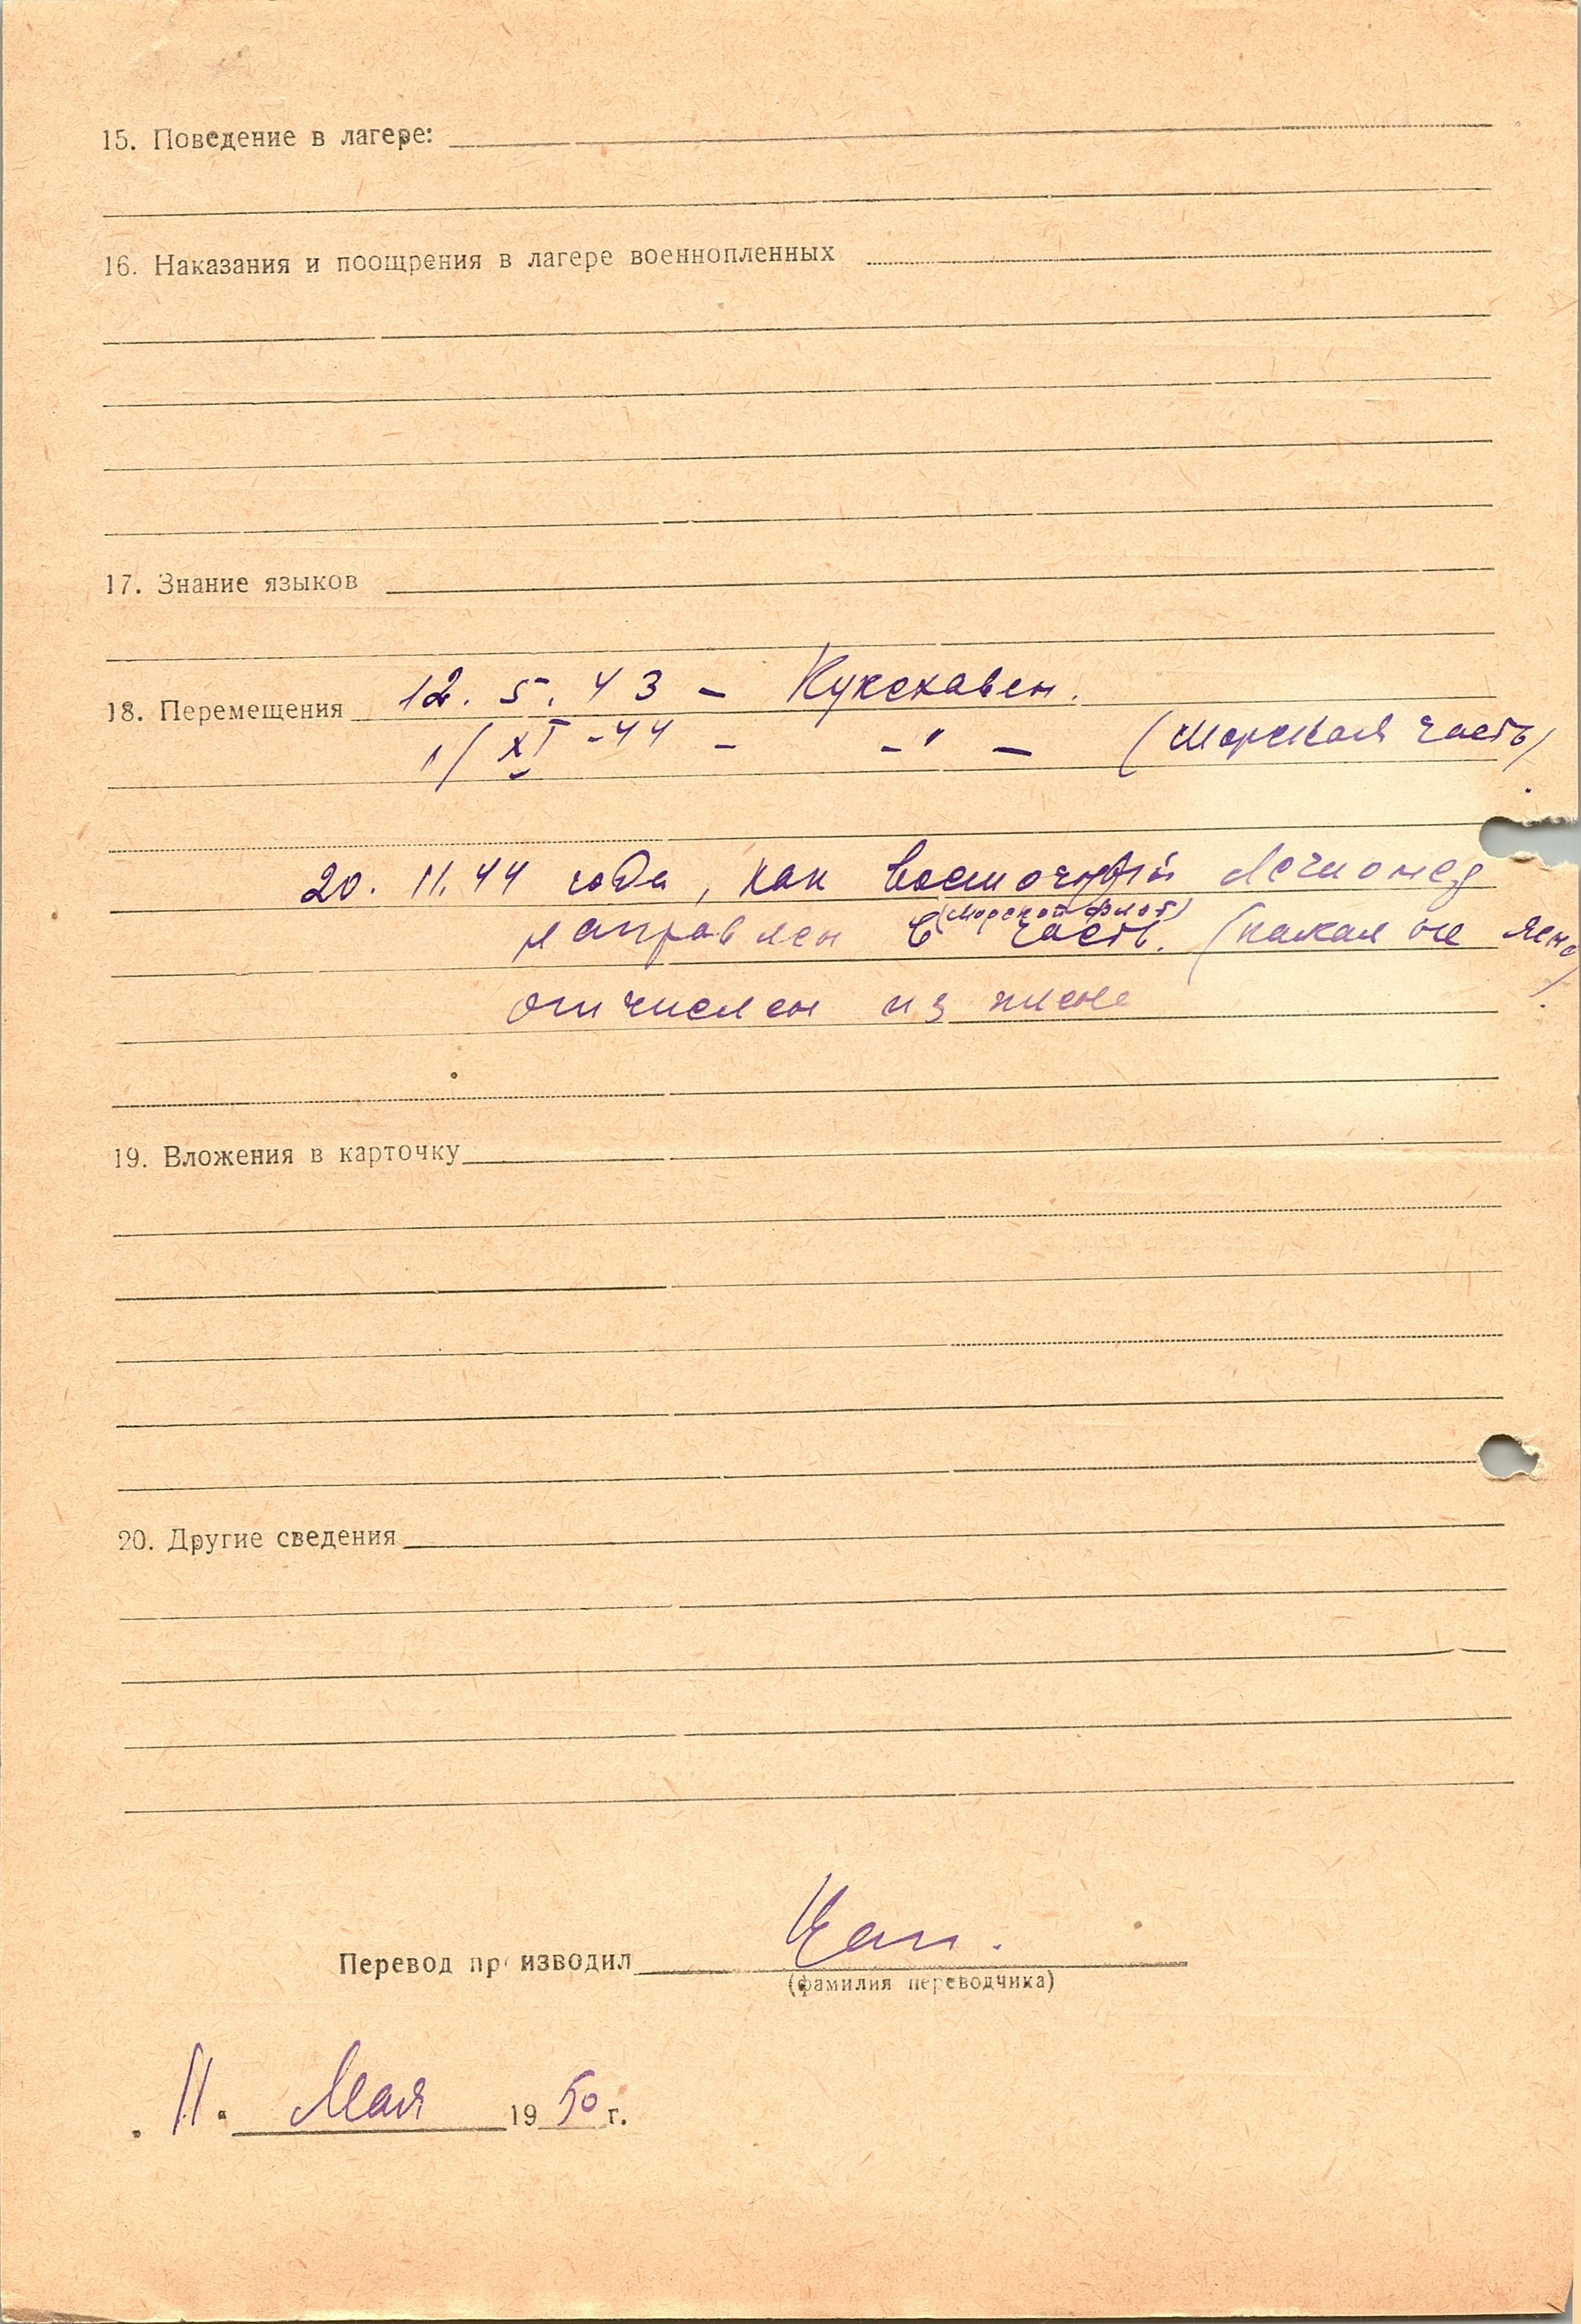 15. Поведение в лагере:
16. Наказания и поощрения в лагере военнопленных
17. Знание языков
18. Перемещения 12. 5. 43 – Куксхавен.
1/XI -44 – -"- (Морская часть)
20. 11. 44 года, как восточный легионер
(морской флот)
направлен в часть. (какая не ясно)
отчислен из плена
19. Вложения в карточку
20. Другие сведения
Перевод производил
(фамилия переводчика)
11. Мая 1950 г.